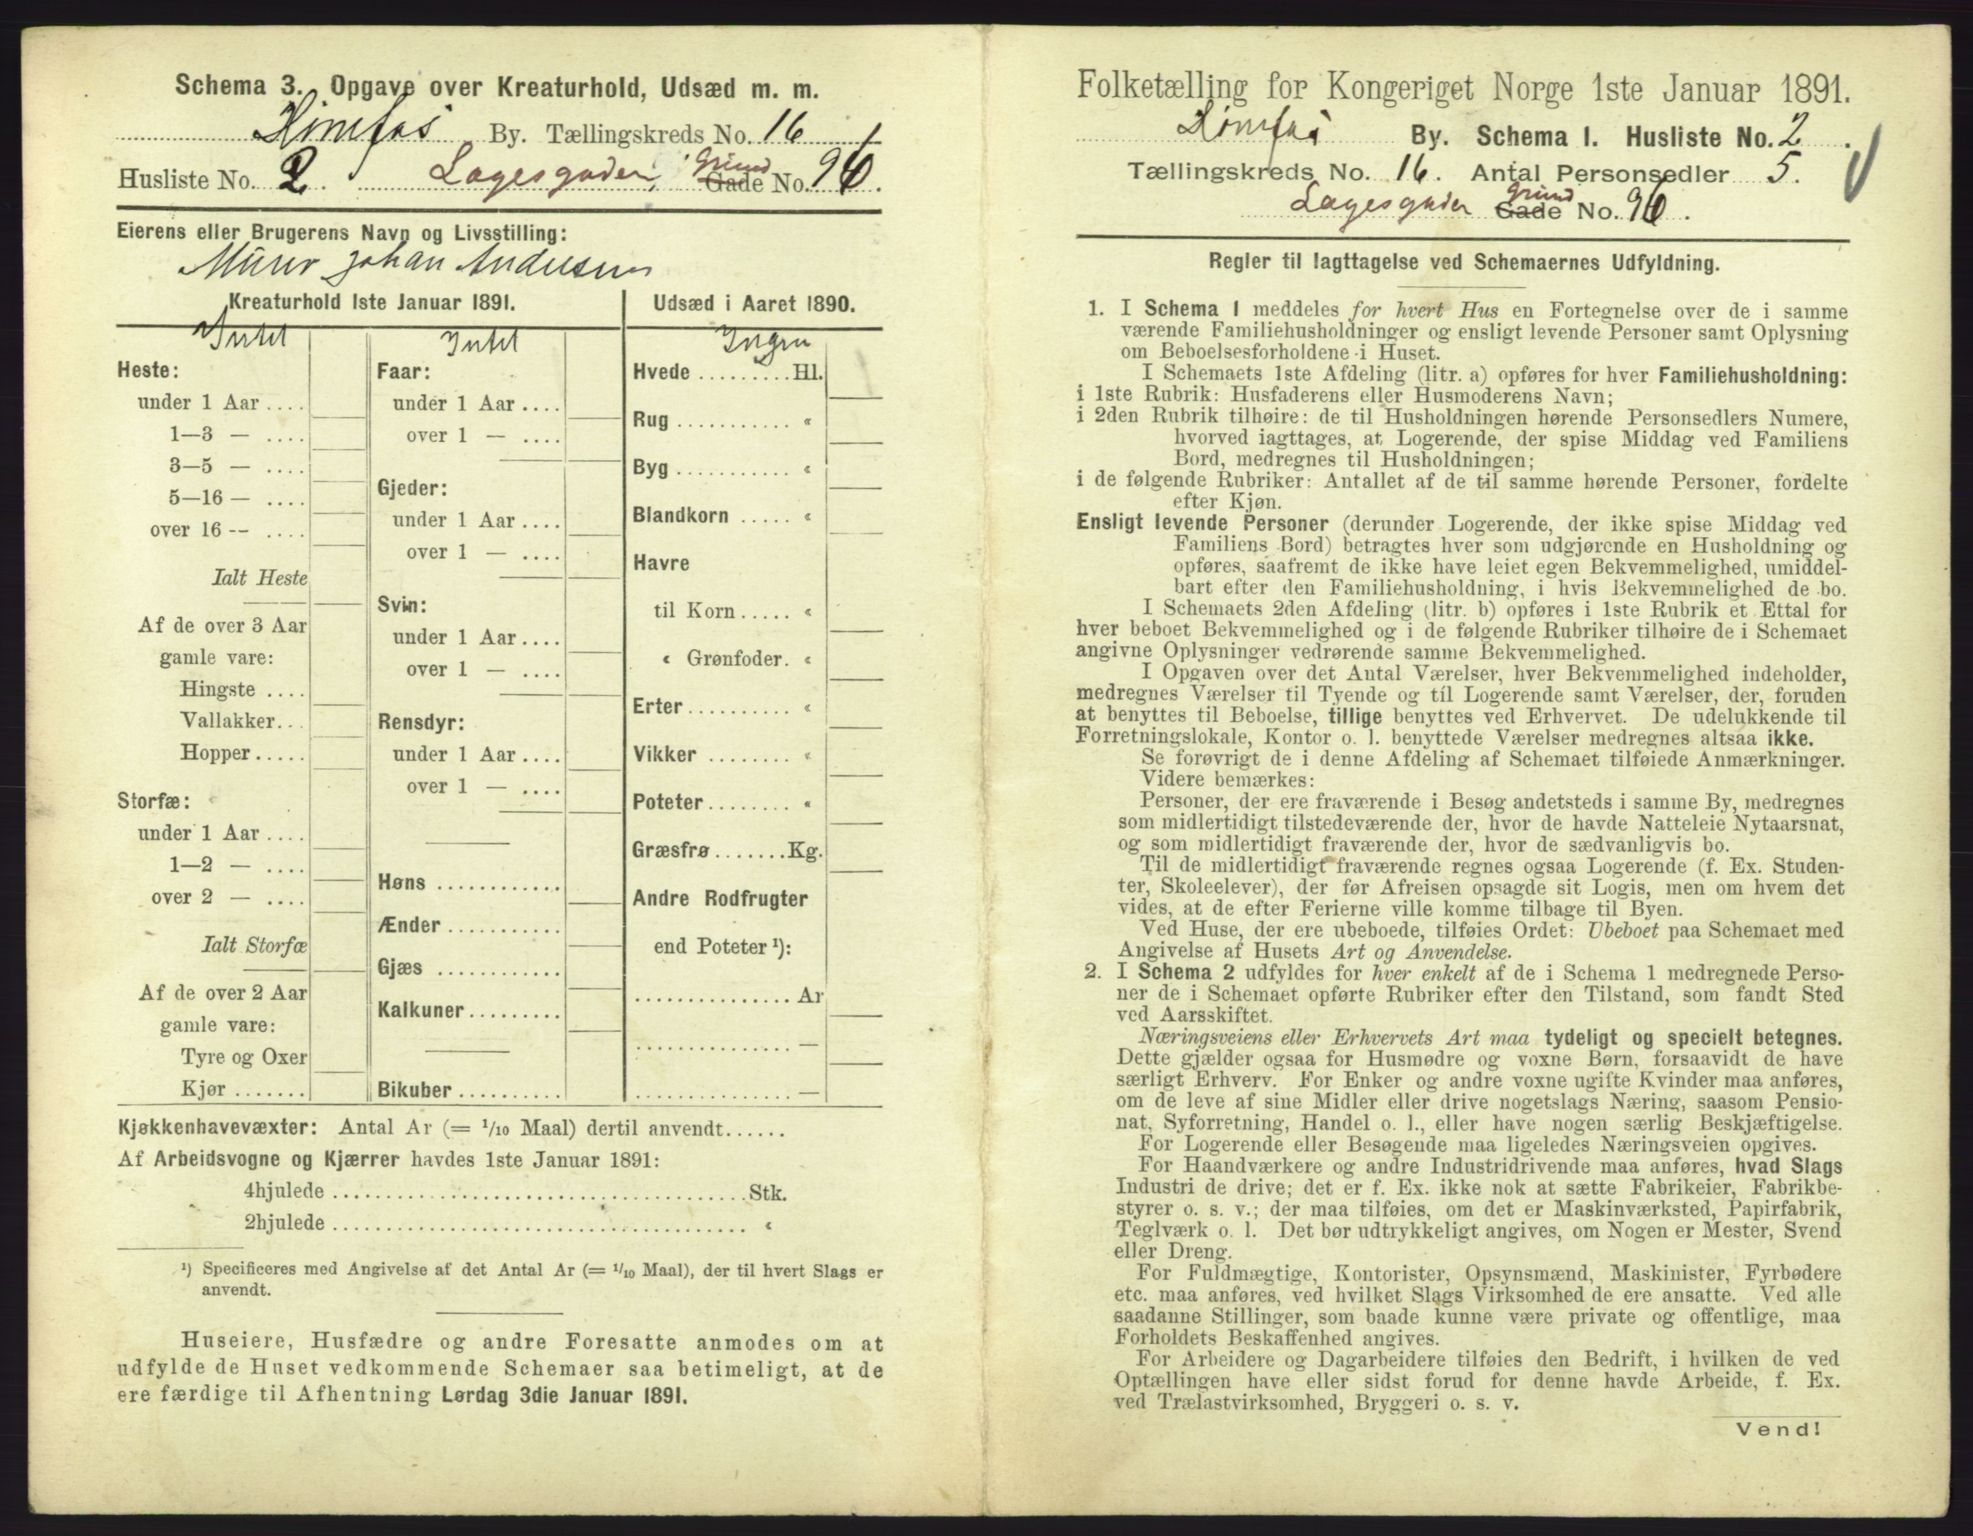 Schema 3. Opgave over Kreaturhold, Udsæd m. m.
Hønefos By. Tællingskreds No. 16
Husliste No. 2. Lagesgaden, Grund Gade No. 96.
Eierens eller Brugerens Navn og Livsstilling:
Murer Johan Andersen
Kreaturhold 1ste Januar 1891.
Intet Intet
Heste:
under 1 Aar ....
1—3 — ....
3—5 — ....
5—16 — ....
over 16 -- ....
Ialt Heste
Af de over 3 Aar
gamle vare:
Hingste ....
Vallakker...
Hopper.....
Storfæ:
under 1 Aar ....
1—2 — ....
over 2 — ....
Ialt Storfæ
Af de over 2 Aar
gamle vare:
Tyre og Oxer
Kjør .......
Faar:
under 1 Aar ....
over 1 — ....
Gjeder:
under 1 Aar ....
over 1 — ....
Svin:
under 1 Aar ....
over 1 — ....
Rensdyr:
under 1 Aar ....
over 1 — ....
Høns ............
Ænder ...........
Gjæs ............
Kalkuner.........
Bikuber ..........
Udsæd i Aaret 1890.
Ingen
Hvede .........Hl.
Rug ........... «
Byg ........... «
Blandkorn ..... «
Havre
til Korn ..... «
« Grønfoder. «
Erter.......... «
Vikker ........ «
Poteter........ «
Græsfrø .......Kg.
Andre Rodfrugter
end Poteter ¹):
............... Ar
............... —
............... —
Kjøkkenhavevæxter: Antal Ar (= 1/10 Maal) dertil anvendt......
Af Arbeidsvogne og Kjærrer havdes 1ste Januar 1891:
4hjulede ......................................Stk.
2hjulede ...................................... «
¹) Specificeres med Angivelse af det Antal Ar (= 1/10 Maal), der til hvert Slags er
anvendt.
Huseiere, Husfædre og andre Foresatte anmodes om at
udfylde de Huset vedkommende Schemaer saa betimeligt, at de
ere færdige til Afhentning Lørdag 3die Januar 1891.
Folketælling for Kongeriget Norge 1ste Januar 1891.
Hønefos By. Schema I. Husliste No. 2.
Tællingskreds No. 16. Antal Personsedler 5.
Lagesgaden Grund Gade No. 96.
Regler til Iagttagelse ved Schemaernes Udfyldning.
1. I Schema I meddeles for hvert Hus en Fortegnelse over de i samme
værende Familiehusholdninger og ensligt levende Personer samt Oplysning
om Beboelsesforholdene i Huset.
I Schemaets 1ste Afdeling (litr. a) opføres for hver Familiehusholdning:
i 1ste Rubrik: Husfaderens eller Husmoderens Navn;
i 2den Rubrik tilhøire: de til Husholdningen hørende Personsedlers Numere,
hvorved iagttages, at Logerende, der spise Middag ved Familiens
Bord, medregnes til Husholdningen;
i de følgende Rubriker: Antallet af de til samme hørende Personer, fordelte
efter Kjøn.
Ensligt levende Personer (derunder Logerende, der ikke spise Middag ved
Familiens Bord) betragtes hver som udgjørende en Husholdning og
opføres, saafremt de ikke have leiet egen Bekvemmelighed, umiddel-
bart efter den Familiehusholdning, i hvis Bekvemmelighed de bo.
I Schemaets 2den Afdeling (litr. b) opføres i 1ste Rubrik et Ettal for
hver beboet Bekvemmelighed og i de følgende Rubriker tilhøire de i Schemaet
angivne Oplysninger vedrørende samme Bekvemmelighed.
I Opgaven over det Antal Værelser, hver Bekvemmelighed indeholder,
medregnes Værelser til Tyende og til Logerende samt Værelser, der, foruden
at benyttes til Beboelse, tillige benyttes ved Erhvervet. De udelukkende til
Forretningslokale, Kontor o. l. benyttede Værelser medregnes altsaa ikke.
Se forøvrigt de i denne Afdeling af Schemaet tilføiede Anmærkninger.
Videre bemærkes:
Personer, der ere fraværende i Besøg andetsteds i samme By, medregnes
som midlertidigt tilstedeværende der, hvor de havde Natteleie Nytaarsnat,
og som midlertidigt fraværende der, hvor de sædvanligvis bo.
Til de midlertidigt fraværende regnes ogsaa Logerende (f. Ex. Studen-
ter, Skoleelever), der før Afreisen opsagde sit Logis, men om hvem det
vides, at de efter Ferierne ville komme tilbage til Byen.
Ved Huse, der ere ubeboede, tilføies Ordet: Ubeboet paa Schemaet med
Angivelse af Husets Art og Anvendelse.
2. I Schema 2 udfyldes for hver enkelt af de i Schema 1 medregnede Perso-
ner de i Schemaet opførte Rubriker efter den Tilstand, som fandt Sted
ved Aarsskiftet.
Næringsveiens eller Erhvervets Art maa tydeligt og specielt betegnes.
Dette gjælder ogsaa for Husmødre og voxne Børn, forsaavidt de have
særligt Erhverv. For Enker og andre voxne ugifte Kvinder maa anføres,
om de leve af sine Midler eller drive nogetslags Næring, saasom Pensio-
nat, Syforretning, Handel o. l., eller have nogen særlig Beskjæftigelse.
For Logerende eller Besøgende maa ligeledes Næringsveien opgives.
For Haandværkere og andre Industridrivende maa anføres, hvad Slags
Industri de drive; det er f. Ex. ikke nok at sætte Fabrikeier, Fabrikbe-
styrer o. s. v.; der maa tilføies, om det er Maskinværksted, Papirfabrik,
Teglværk o. l. Det bør udtrykkeligt angives, om Nogen er Mester, Svend
eller Dreng.
For Fuldmægtige, Kontorister, Opsynsmænd, Maskinister, Fyrbødere
etc. maa anføres, ved hvilket Slags Virksomhed de ere ansatte. Ved alle
saadanne Stillinger, som baade kunne være private og offentlige, maa
Forholdets Beskaffenhed angives.
For Arbeidere og Dagarbeidere tilføies den Bedrift, i hvilken de ved
Optællingen have eller sidst forud for denne havde Arbeide, f. Ex.
ved Trælastvirksomhed, Bryggeri o. s. v.
Vend!